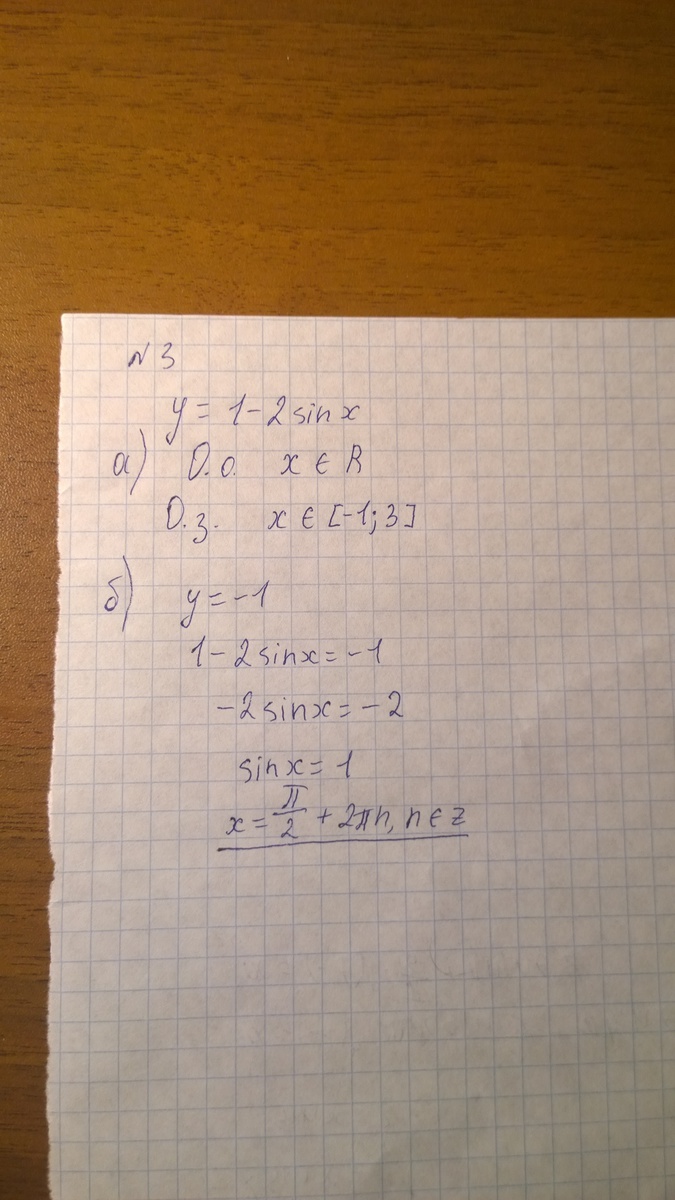 N 3
y = 1 - 2 sin x
а) О.о. x ∈ R
О.з. x ∈ [-1; 3]
б) y = -1
1 - 2 sin x = -1
-2 sin x = -2
sin x = 1
x = π/2 + 2πn, n ∈ z